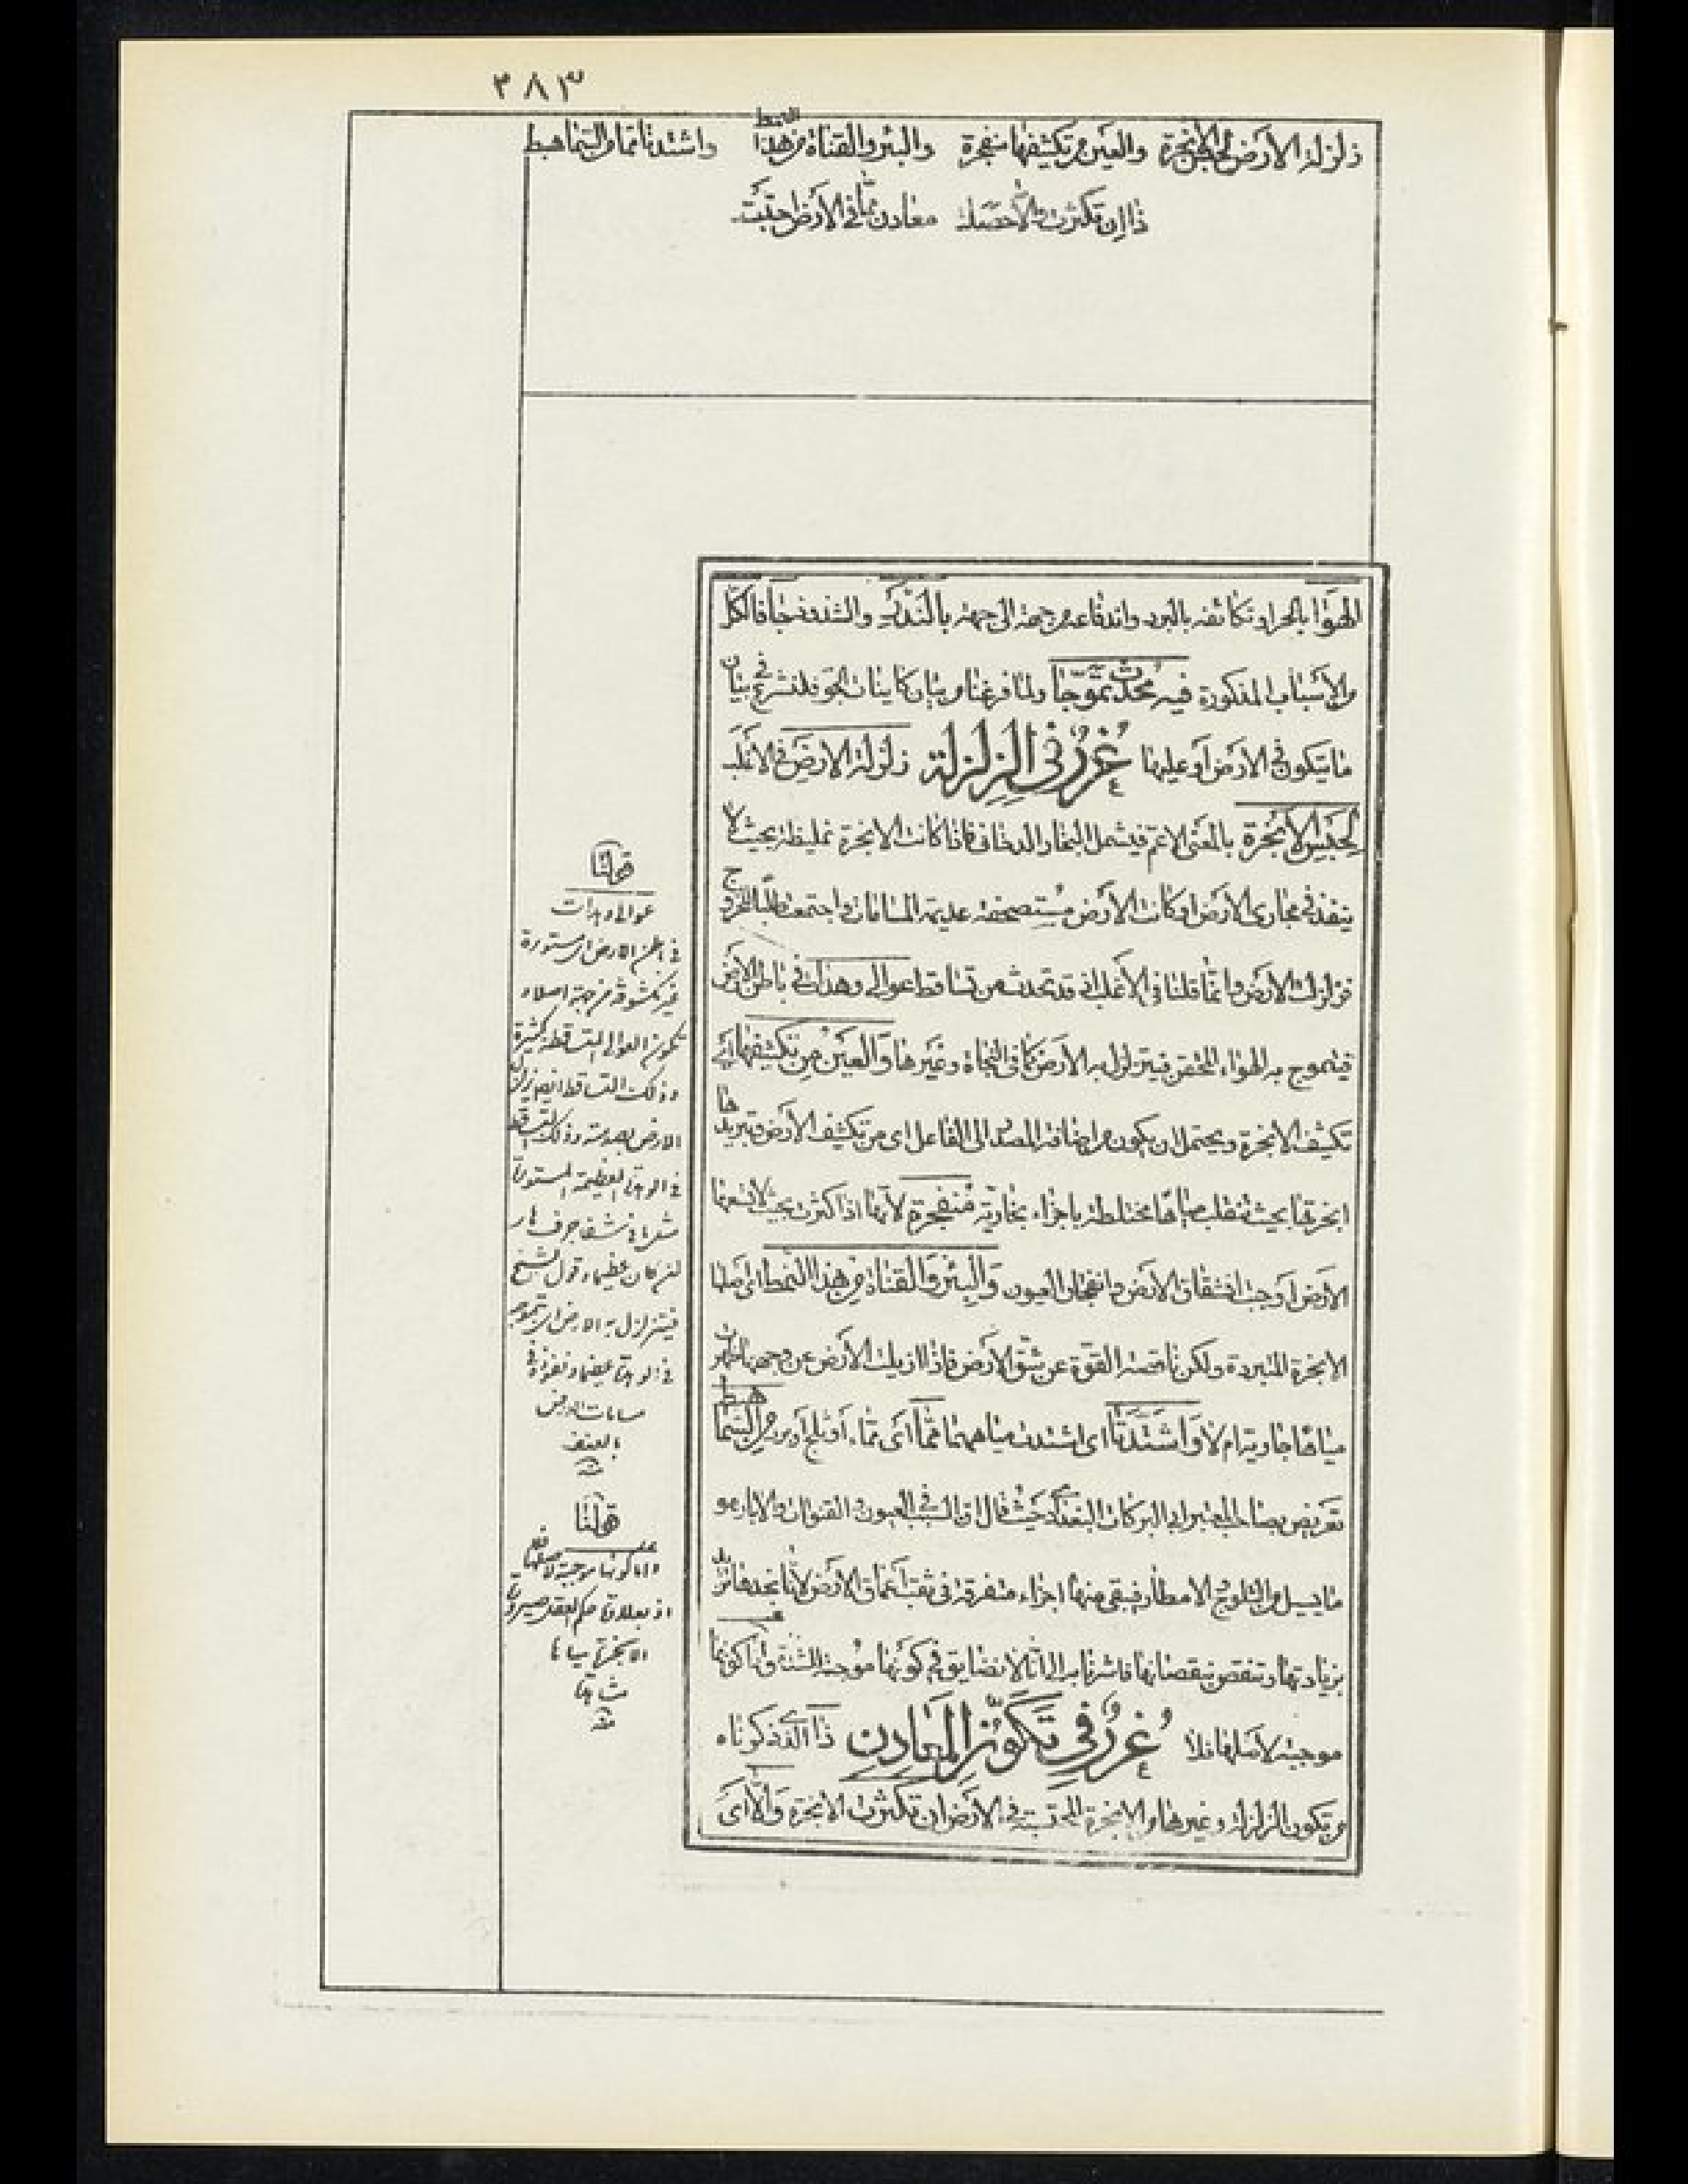 ٢٨٣
زلزلة الأرض لحبس الأبخرة والعين من تكثيفها منفجرة والبئر والقناة من هذا النمط واشتدتا مما من السما هبط
ذا إن تكثرت وإلا حصلت معادن مما في الأرض احتبست
الهواء بالحر او تكاثفه بالبرد واندفاعه من جهة الى جهة
والأسباب المذكورة فيه محدث تموجا ولما فرغنا من بيان كاينات الجو فلنشرع في بيان
ما يتكون في الأرض أو عليها غرر في الزلزلة زلزلة الارض في الاغلب
لحبس الأبخرة بالمعنى الاعم فيشمل البخار والدخان فاذا كانت الابخرة غليظة بحيث لا
ينفذ في مجاري الأرض او كانت الأرض مستصحفة عديمة المسامات واجتمعت طلبا للخروج
فزلزلت الأرض وانما قلنا في الأغلب اذ قد تحدث من تساقط عوالي وهدات في باطن الأرض
فيتموج به الهواء المحتقن فيتزلزل به الأرض كما في النجاة وغيرها والعين من تكثيفها أي
تكثيف الابخرة ويحتمل ان يكون من اضافة المصدر الى الفاعل اى من تكثيف الأرض وتبريدها
ابخرتها بحيث تنقلب مياها مختلطة باجزاء بخارية منفجرة لأنها اذا كثرت بحيث لا تسعها
الأرض أوجب انشقاق الأرض وانفجار العيون والبئر والقناة من هذا النمط اى اصلها
الابخرة المتبردة ولكن ناقصة القوة عن شق الأرض فاذا ازيلت الأرض عن وجهها ظهرت
مياهها جارية ام لا واشتدتا اى اشتدت مياههما مما أى ماء أو ثلج أو برد من السما هبط
تعريض بصاحب المعتبر ابي البركات البغدادي حيث قال ان السبب في العيون والقنوات والابار هو
ما يسيل من الثلوج والامطار فيبقى منها اجزاء متفرقة في ثقب أعماق الارض لأنا نجدها تزيد
بزيادتها وتنقص بنقصانها فاشرنا به الى انا لا نضايق في كونها موجبة للشدة واما كونها
موجبة لاصلها فلا غرر في تكون المعادن ذا الذي ذكرناه
من تكون الزلزلة وغيرها من الابخرة المحتبسة في الأرض ان تكثرت الابخرة والا أى
قولنا
عوالي وهدات
في باطن الارض اى مستورة
غير مكشوفة من جهة اصلا و
تكون العوالي المتساقطة كثيرة
وذلك التساقط ايضا يزلزل
الارض بصدمته وذلك التساقط
في الوهدة العظيمة المستورة
لو كان عظيما وقول الشيخ
فيتزلزل به الارض اى بتموجه
في الوهدة عنيفا ونفوذه في
مسامات الارض
بالعنف
منه
قولنا
واما كونها موجبة لاصلها فلا
الابخرة مياها
منه